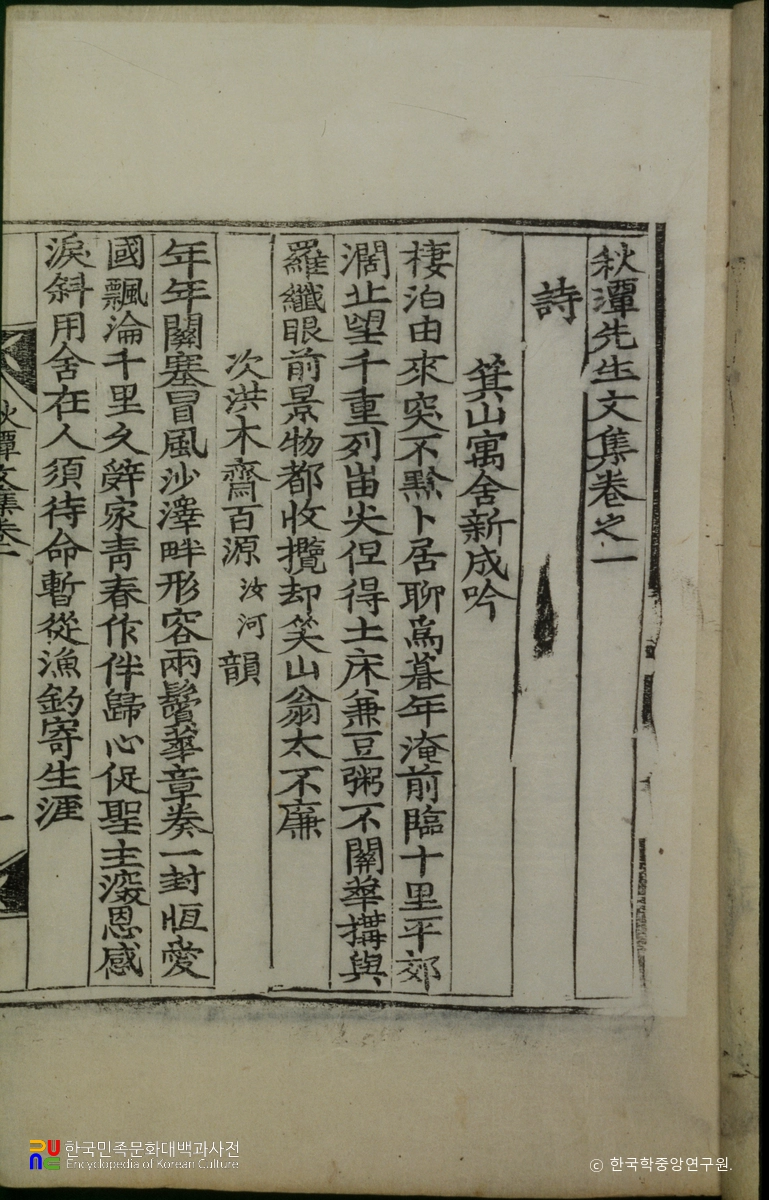 秋潭先生文集卷之一
詩
箕山寓舍新成吟
棲泊由來突不黔卜居聊爲暮年淹前臨十里平郊
濶北望千重列岫尖但得土床兼豆粥不關華構與
羅纖眼前景物都收攬却笑山翁太不廉
次洪木齋百源汝河韻
年年關塞冒風沙澤畔形容兩鬢華章奏一封恒愛
國飄淪千里久辭家靑春作伴歸心促聖主深恩感
淚斜用舍在人須待命暫從漁釣寄生涯
秋潭文集卷一
한국민족문화대백과사전
Encyclopedia of Korean Culture
© 한국학중앙연구원.